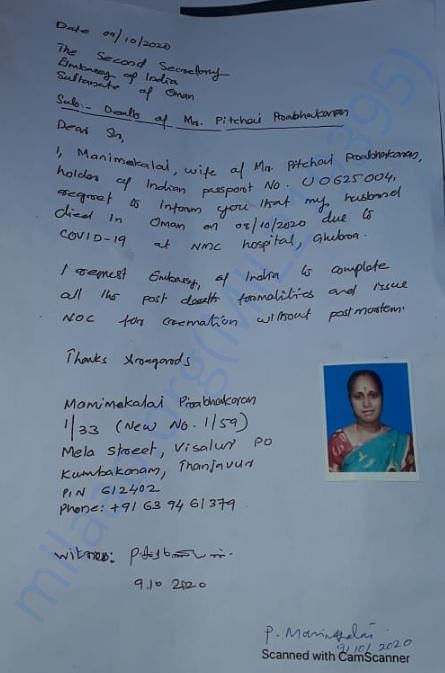 Date 09/10/2020
The Second Secretary
Embassy of India
Sultanate of Oman
Sub:- Death of Mr. Pitchai Prabhakaran
Dear Sir,
I, Manimekalai, wife of Mr. Pitchai Prabhakaran,
holder of Indian passport No. U0625004,
regret to inform you that my husband
died in Oman on 08/10/2020 due to
COVID-19 at NMC hospital, Ghubra.
I request Embassy of India to complete
all the post death formalities and issue
NOC for cremation without postmortem.
Thanks & regards
Manimekalai Prabhakaran
1/33 (New No. 1/59)
Mela Street, Visalur PO
Kumbakonam, Thanjavur
PIN 612402
Phone: +91 63 94 61 379
Witness:
9.10 2020
P. Manimekalai
9/10/2020
Scanned with CamScanner